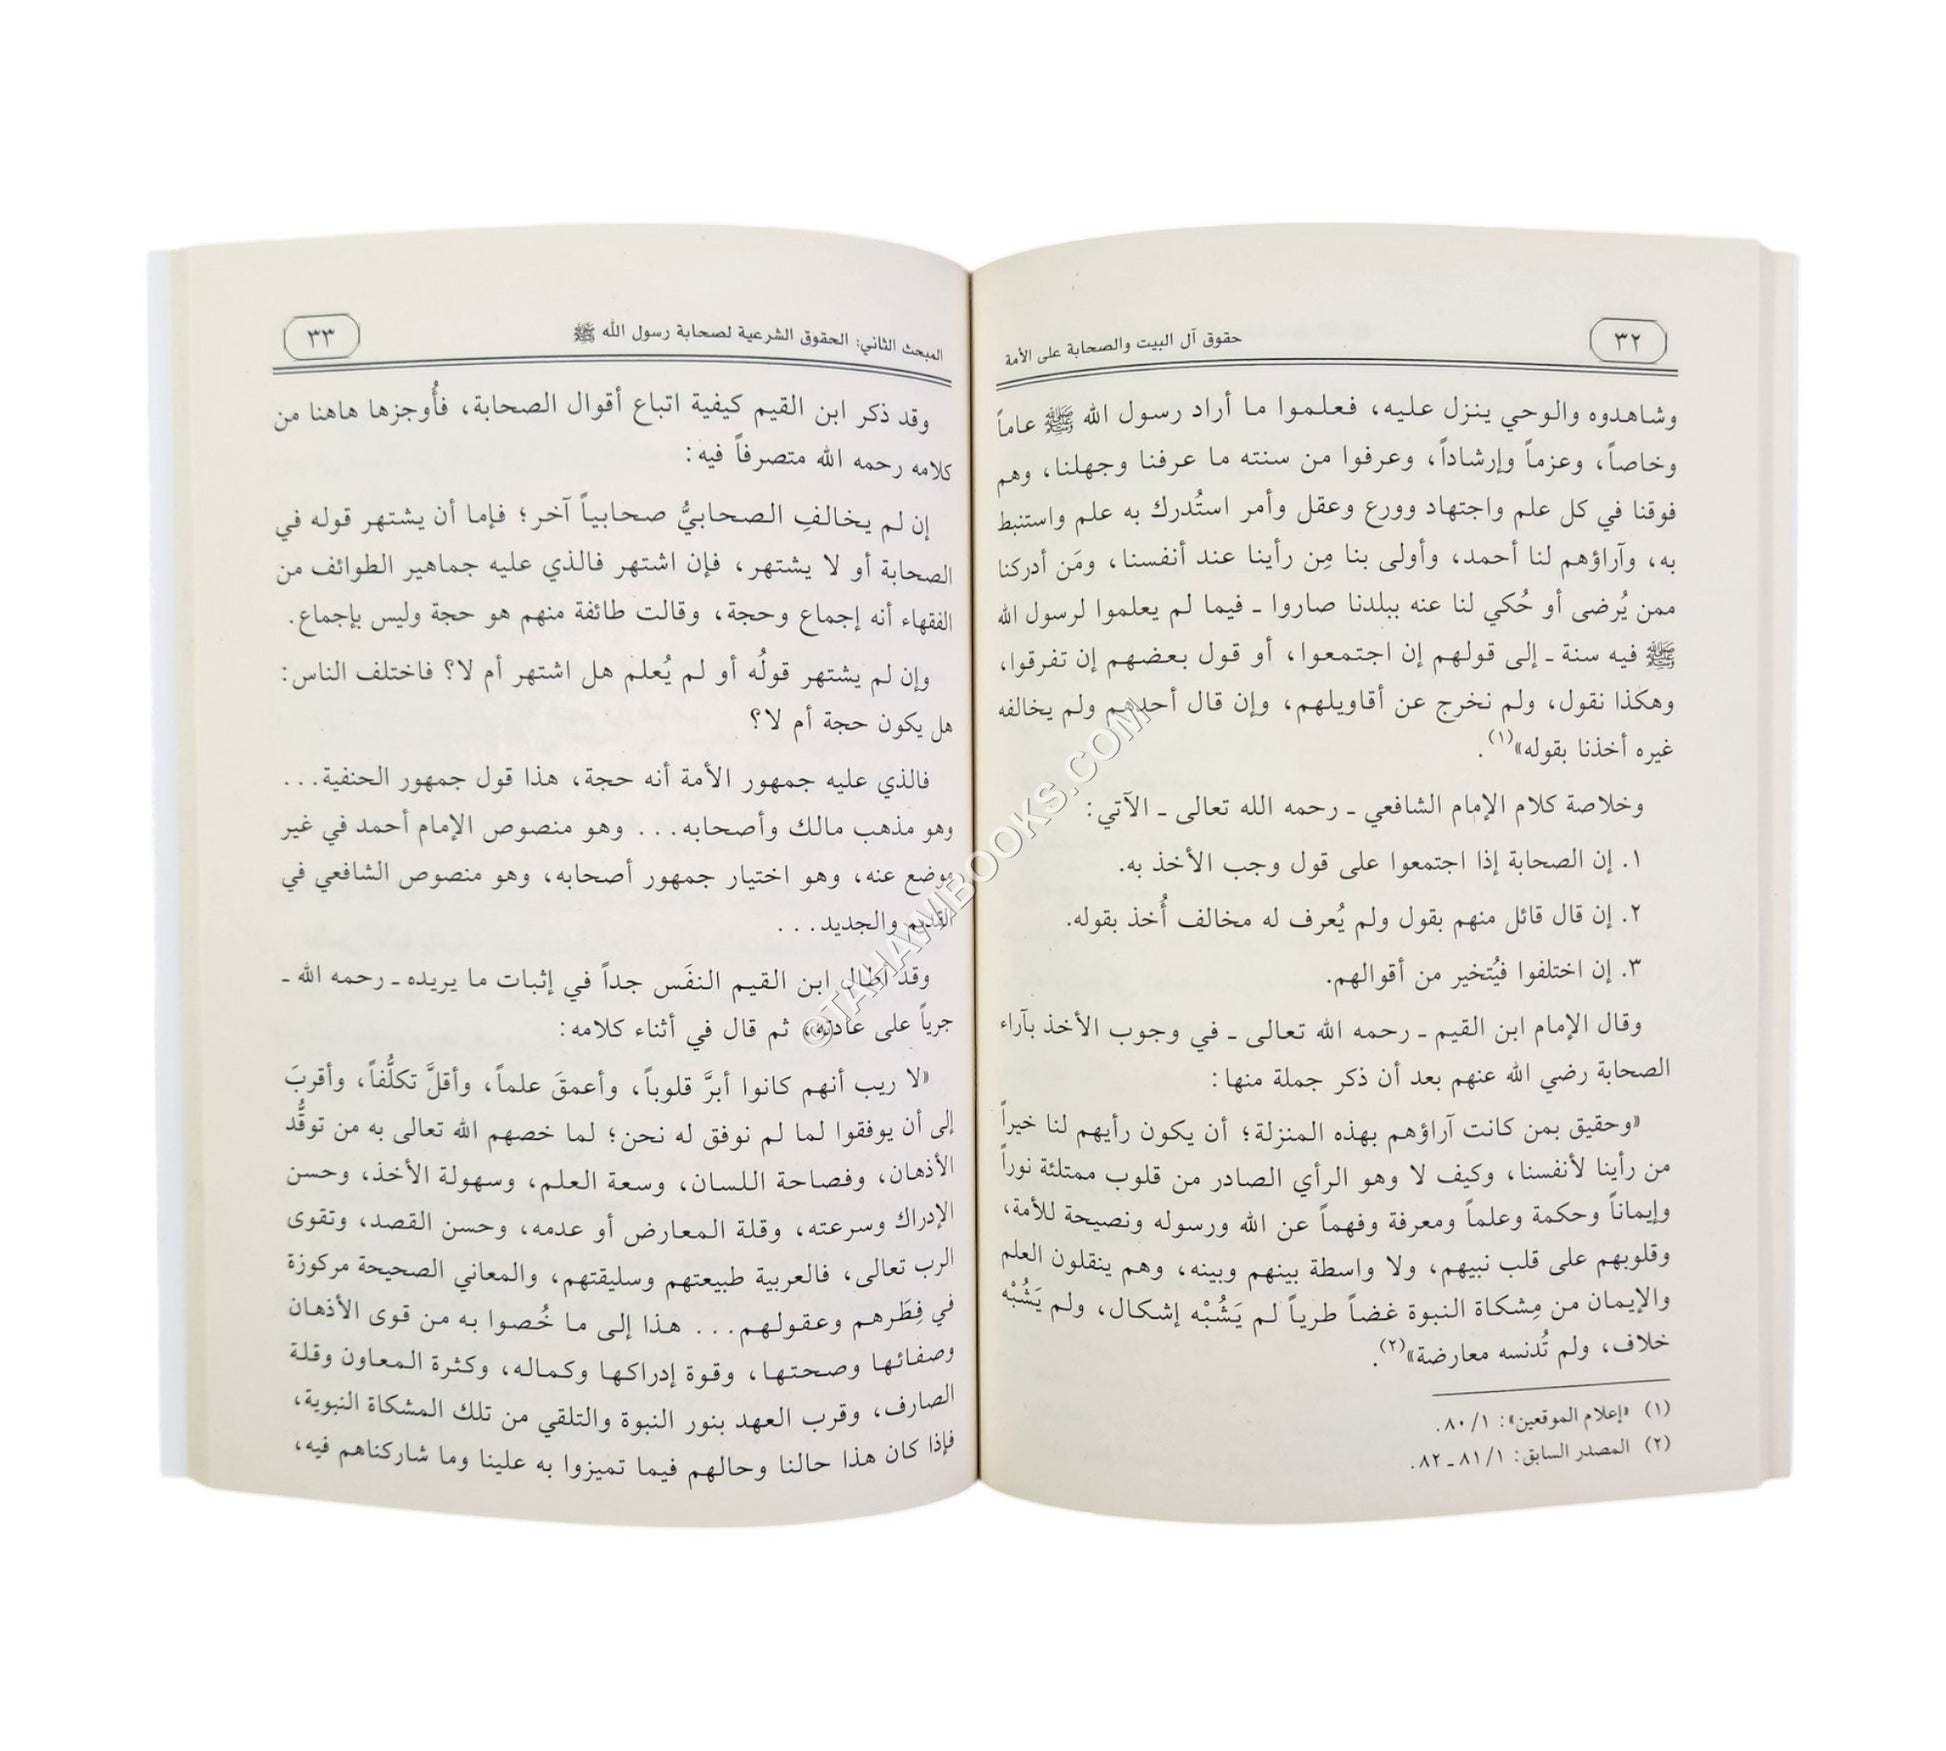 ٣٢
حقوق آل البيت والصحابة على الأمة
وشاهدوه والوحي ينزل عليه، فعلموا ما أراد رسول الله ﷺ عاماً
وخاصاً، وعزماً وإرشاداً، وعرفوا من سنته ما عرفنا وجهلنا، وهم
فوقنا في كل علم واجتهاد وورع وعقل وأمر استُدرك به علم واستنبط
به، وآراؤهم لنا أحمد، وأولى بنا مِن رأينا عند أنفسنا، ومَن أدركنا
ممن يُرضى أو حُكي لنا عنه ببلدنا صاروا ـ فيما لم يعلموا لرسول الله
ﷺ فيه سنة ـ إلى قولهم إن اجتمعوا، أو قول بعضهم إن تفرقوا،
وهكذا نقول، ولم نخرج عن أقاويلهم، وإن قال أحدهم ولم يخالفه
غيره أخذنا بقوله»(١).
وخلاصة كلام الإمام الشافعي ـ رحمه الله تعالى ـ الآتي:
١. إن الصحابة إذا اجتمعوا على قول وجب الأخذ به.
٢. إن قال قائل منهم بقول ولم يُعرف له مخالف أُخذ بقوله.
٣. إن اختلفوا فيُتخير من أقوالهم.
وقال الإمام ابن القيم ـ رحمه الله تعالى ـ في وجوب الأخذ بآراء
الصحابة رضي الله عنهم بعد أن ذكر جملة منها:
«وحقيق بمن كانت آراؤهم بهذه المنزلة؛ أن يكون رأيهم لنا خيراً
من رأينا لأنفسنا، وكيف لا وهو الرأي الصادر من قلوب ممتلئة نوراً
وإيماناً وحكمة وعلماً ومعرفة وفهماً عن الله ورسوله ونصيحة للأمة،
وقلوبهم على قلب نبيهم، ولا واسطة بينهم وبينه، وهم ينقلون العلم
والإيمان من مِشكاة النبوة غضاً طرياً لم يَشُبْه إشكال، ولم يَشُبْه
خلاف، ولم تُدنسه معارضة»(٢).
(١) «إعلام الموقعين»: ١/ ٨٠.
(٢) المصدر السابق: ١/ ٨١ ـ ٨٢.
المبحث الثاني: الحقوق الشرعية لصحابة رسول الله ﷺ
٣٣
وقد ذكر ابن القيم كيفية اتباع أقوال الصحابة، فأُوجزها هاهنا من
كلامه رحمه الله متصرفاً فيه:
إن لم يخالفِ الصحابيُّ صحابياً آخر؛ فإما أن يشتهر قوله في
الصحابة أو لا يشتهر، فإن اشتهر فالذي عليه جماهير الطوائف من
الفقهاء أنه إجماع وحجة، وقالت طائفة منهم هو حجة وليس بإجماع.
وإن لم يشتهر قولُه أو لم يُعلم هل اشتهر أم لا؟ فاختلف الناس:
هل يكون حجة أم لا؟
فالذي عليه جمهور الأمة أنه حجة، هذا قول جمهور الحنفية...
وهو مذهب مالك وأصحابه... وهو منصوص الإمام أحمد في غير
موضع عنه، وهو اختيار جمهور أصحابه، وهو منصوص الشافعي في
القديم والجديد...
وقد أطال ابن القيم النفَس جداً في إثبات ما يريده ـ رحمه الله ـ
جرياً على عادته، ثم قال في أثناء كلامه:
«لا ريب أنهم كانوا أبرَّ قلوباً، وأعمقَ علماً، وأقلَّ تكلُّفاً، وأقربَ
إلى أن يوفقوا لما لم نوفق له نحن؛ لما خصهم الله تعالى به من توقُّد
الأذهان، وفصاحة اللسان، وسعة العلم، وسهولة الأخذ، وحسن
الإدراك وسرعته، وقلة المعارض أو عدمه، وحسن القصد، وتقوى
الرب تعالى، فالعربية طبيعتهم وسليقتهم، والمعاني الصحيحة مركوزة
في فِطَرهم وعقولهم... هذا إلى ما خُصوا به من قوى الأذهان
وصفائها وصحتها، وقوة إدراكها وكماله، وكثرة المعاون وقلة
الصارف، وقرب العهد بنور النبوة والتلقي من تلك المشكاة النبوية،
فإذا كان هذا حالنا وحالهم فيما تميزوا به علينا وما شاركناهم فيه،
©TAHAWIBOOKS.COM